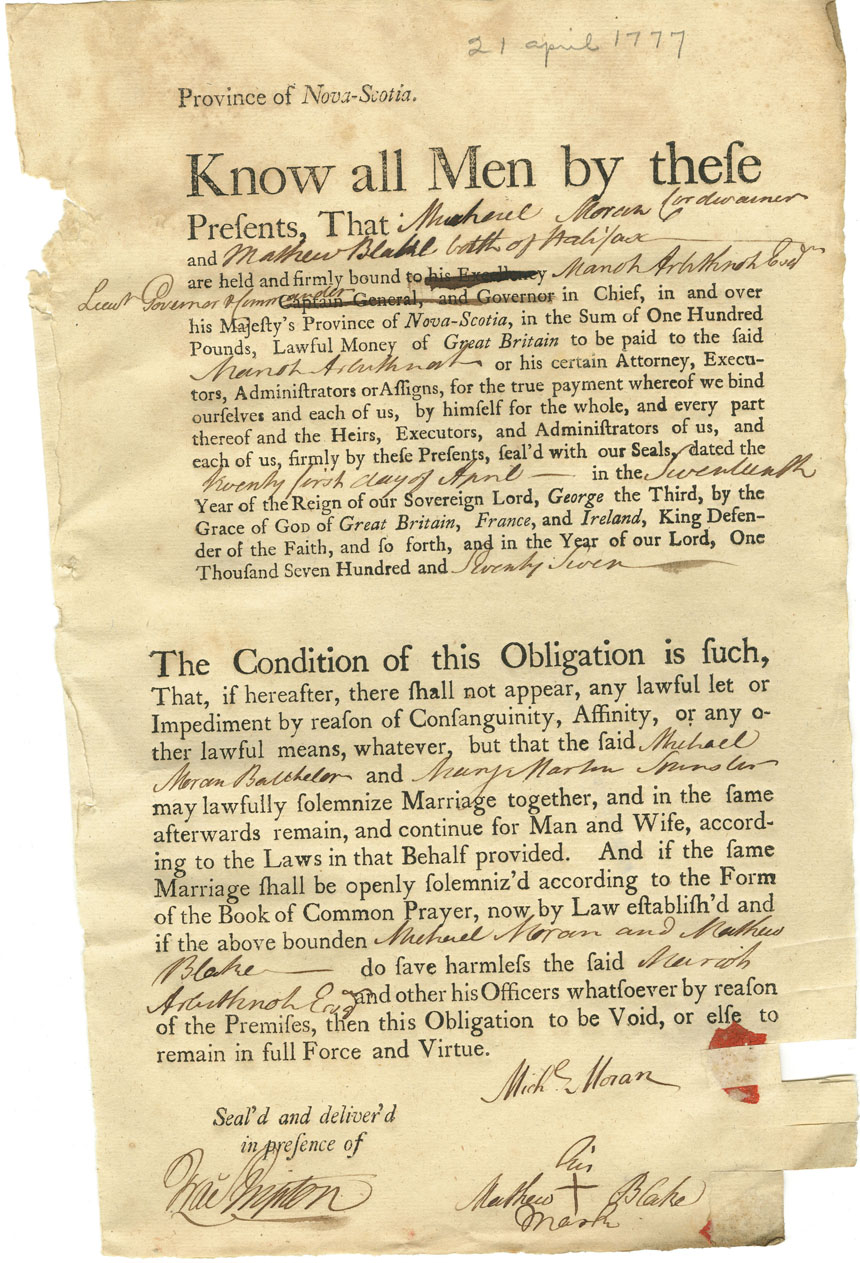 21 april 1777
Province of Nova-Scotia.
Know all Men by theſe
Preſents, That Michael Moran Cordwainer
and Mathew Blake both of Halifax
are held and firmly bound to his Excellency Mariot Arbuthnot Esqr
Lieut Governor & Commander Captain General, and Governor in Chief, in and over
his Majeſty's Province of Nova-Scotia, in the Sum of One Hundred
Pounds, Lawful Money of Great Britain to be paid to the ſaid
Mariot Arbuthnot or his certain Attorney, Execu-
tors, Adminiſtrators or Aſſigns, for the true payment whereof we bind
ourſelves and each of us, by himſelf for the whole, and every part
thereof and the Heirs, Executors, and Adminiſtrators of us, and
each of us, firmly by theſe Preſents, ſeal'd with our Seals, dated the
twenty first day of April in the Seventeenth
Year of the Reign of our Sovereign Lord, George the Third, by the
Grace of God of Great Britain, France, and Ireland, King Defen-
der of the Faith, and ſo forth, and in the Year of our Lord, One
Thouſand Seven Hundred and Seventy Seven
The Condition of this Obligation is ſuch,
That, if hereafter, there ſhall not appear, any lawful let or
Impediment by reaſon of Conſanguinity, Affinity, or any o-
ther lawful means, whatever, but that the ſaid Michael
Moran Batchelor and Mary Martin Spinster
may lawfully ſolemnize Marriage together, and in the ſame
afterwards remain, and continue for Man and Wife, accord-
ing to the Laws in that Behalf provided. And if the ſame
Marriage ſhall be openly ſolemniz'd according to the Form
of the Book of Common Prayer, now by Law eſtabliſh'd and
if the above bounden Michael Moran and Mathew
Blake do ſave harmleſs the ſaid Mariot
Arbuthnot Esqr and other his Officers whatſoever by reaſon
of the Premiſes, then this Obligation to be Void, or elſe to
remain in full Force and Virtue.
Michl Moran
Seal'd and deliver'd
in preſence of
his
Mathew + Blake
Mark